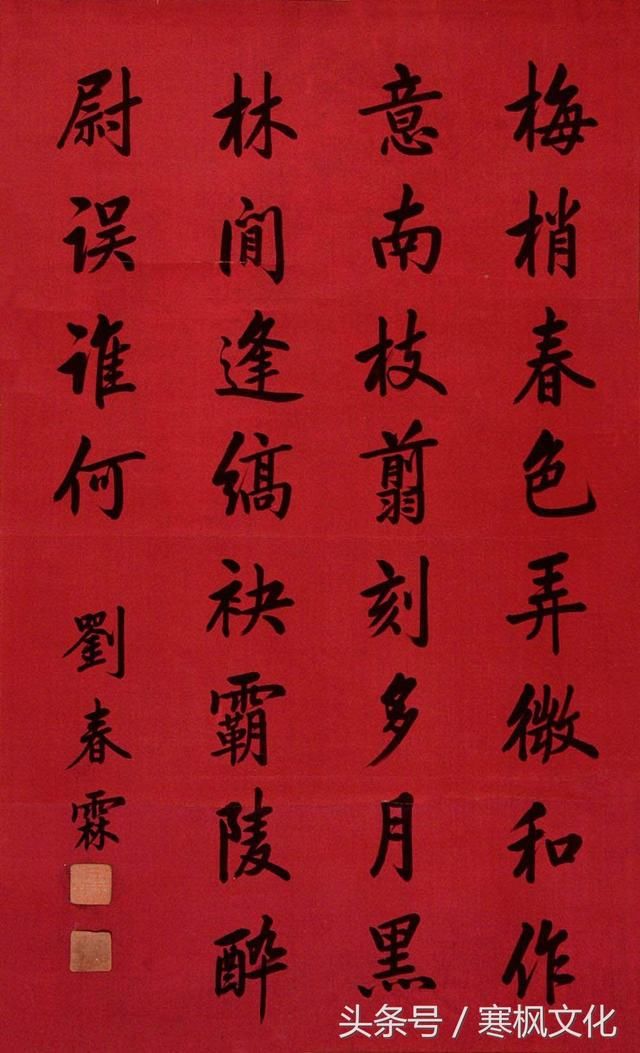 梅梢春色弄微和作
意南枝翦刻多月黑
林间逢缟袂霸陵醉
尉误谁何
劉春霖
头条号／寒枫文化